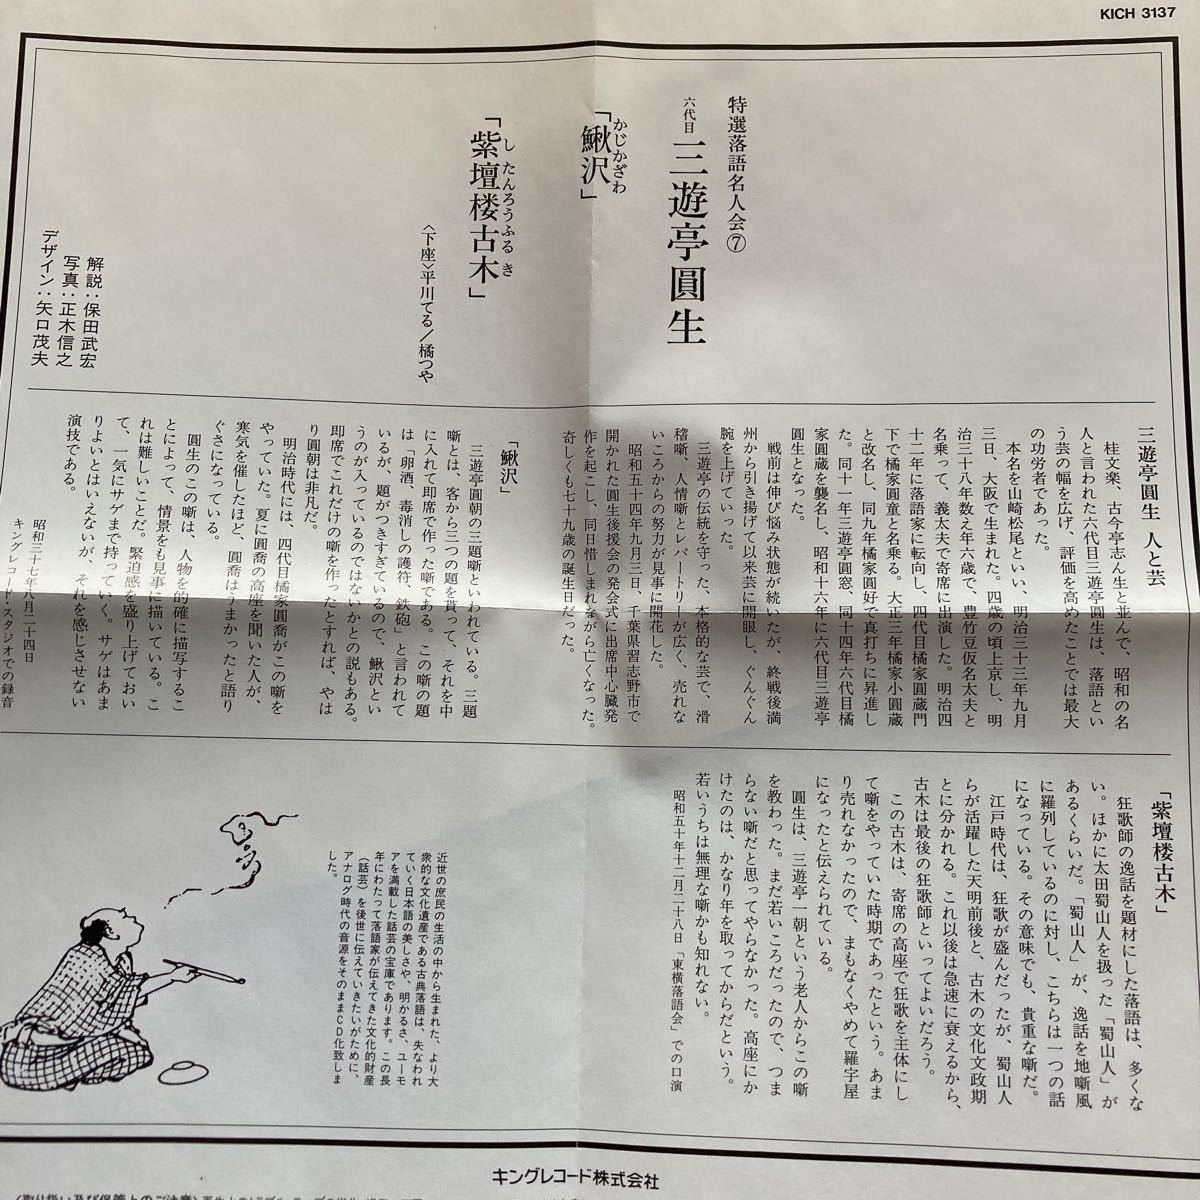 KICH 3137
特選落語名人会⑦
六代目 三遊亭圓生
かじかざわ
「鰍沢」
し たんろうふる き
「紫壇楼古木」
〈下座〉平川てる/橘つや
解説:保田武宏
写真:正木信之
デザイン:矢口茂夫
三遊亭圓生 人と芸
桂文楽、古今亭志ん生と並んで、昭和の名
人と言われた六代目三遊亭圓生は、落語とい
う芸の幅を広げ、評価を高めたことでは最大
の功労者であった。
本名を山崎松尾といい、明治三十三年九月
三日、大阪で生まれた。四歳の頃上京し、明
治三十八年数え年六歳で、豊竹豆仮名太夫と
名乗って、義太夫で寄席に出演した。明治四
十二年に落語家に転向し、四代目橘家圓蔵門
下で橘家圓童と名乗る。大正三年橘家小圓蔵
と改名し、同九年橘家圓好で真打ちに昇進し
た。同十一年三遊亭圓窓、同十四年六代目橘
家圓蔵を襲名し、昭和十六年に六代目三遊亭
圓生となった。
戦前は伸び悩み状態が続いたが、終戦後満
州から引き揚げて以来芸に開眼し、ぐんぐん
腕を上げていった。
三遊亭の伝統を守った、本格的な芸で、滑
稽噺、人情噺とレパートリーが広く、売れな
いころからの努力が見事に開花した。
昭和五十四年九月三日、千葉県習志野市で
開かれた圓生後援会の発会式に出席中心臓発
作を起こし、同日惜しまれながら亡くなった。
奇しくも七十九歳の誕生日だった。
「鰍沢」
三遊亭圓朝の三題噺といわれている。三題
噺とは、客から三つの題を貰って、それを中
に入れて即席で作った噺である。この噺の題
は「卵酒、毒消しの護符、鉄砲」と言われて
いるが、題がつきすぎているので、鰍沢とい
うのが入っているのではないかとの説もある。
即席でこれだけの噺を作ったとすれば、やは
り圓朝は非凡だ。
明治時代には、四代目橘家圓喬がこの噺を
やっていた。夏に圓喬の高座を聞いた人が、
寒気を催したほど、圓喬はうまかったと語り
ぐさになっている。
圓生のこの噺は、人物を的確に描写するこ
とによって、情景をも見事に描いている。こ
れは難しいことだ。緊迫感を盛り上げておい
て、一気にサゲまで持っていく。サゲはあま
りよいとはいえないが、それを感じさせない
演技である。
昭和三十七年八月二十四日
キングレコード・スタジオでの録音
「紫壇楼古木」
狂歌師の逸話を題材にした落語は、多くな
い。ほかに太田蜀山人を扱った「蜀山人」が
あるくらいだ。「蜀山人」が、逸話を地噺風
に羅列しているのに対し、こちらは一つの話
になっている。その意味でも、貴重な噺だ。
江戸時代は、狂歌が盛んだったが、蜀山人
らが活躍した天明前後と、古木の文化文政期
とに分かれる。これ以後は急速に衰えるから、
古木は最後の狂歌師といってよいだろう。
この古木は、寄席の高座で狂歌を主体にし
て噺をやっていた時期であったという。あま
り売れなかったので、まもなくやめて羅宇屋
になったと伝えられている。
圓生は、三遊亭一朝という老人からこの噺
を教わった。まだ若いころだったので、つま
らない噺だと思ってやらなかった。高座にか
けたのは、かなり年を取ってからだという。
若いうちは無理な噺かも知れない。
昭和五十年十二月二十八日「東横落語会」での口演
近世の庶民の生活の中から生まれた、より大
衆的な文化遺産である古典落語は、失なわれ
ていく日本語の美しさや、明かるさ、ユーモ
アを満載した話芸の宝庫であります。この長
年にわたって落語家が伝えてきた文化的財産
(話芸)を後世に伝えていきたいがために、
アナログ時代の音源をそのままCD化致しま
した。
キングレコード株式会社